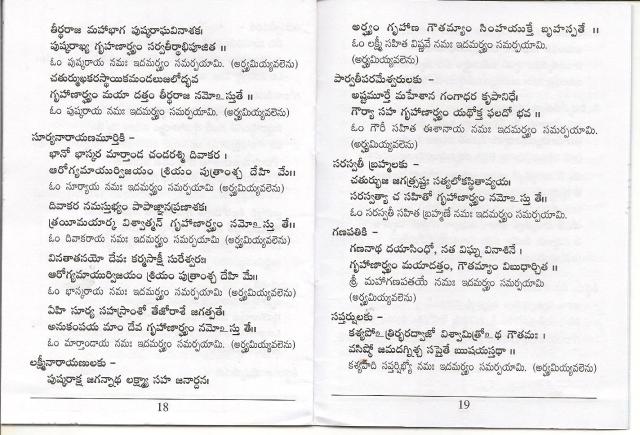 తీర్థరాజ మహాభాగ పుష్కరాఘవినాశక।
పుష్కరాఖ్య గృహాణార్ఘ్యం సర్వతీర్థాభిపూజిత ॥
ఓం పుష్కరాయ నమః ఇదమర్ఘ్యం సమర్పయామి. (అర్ఘ్యమియ్యవలెను)
చతుర్ముఖకరస్థాయికమండలుజలోద్భవ
గృహాణార్ఘ్యం మయా దత్తం తీర్థరాజ నమోఽస్తుతే ॥
ఓం పుష్కరాయ నమః ఇదమర్ఘ్యం సమర్పయామి. (అర్ఘ్యమియ్యవలెను)
సూర్యనారాయణమూర్తికి –
భానో భాస్కర మార్తాండ చండరశ్మి దివాకర ।
ఆరోగ్యమాయుర్విజయం శ్రియం పుత్రాంశ్చ దేహి మే॥
ఓం సూర్యాయ నమః ఇదమర్ఘ్యం సమర్పయామి (అర్ఘ్యమియ్యవలెను)
దివాకర నమస్తుభ్యం పాపాజ్ఞానప్రణాశక।
త్రయీమయార్క విశ్వాత్మన్ గృహాణార్ఘ్యం నమోఽస్తు తే॥
ఓం దివాకరాయ నమః ఇదమర్ఘ్యం సమర్పయామి. (అర్ఘ్యమియ్యవలెను)
వినతాతనయో దేవః కర్మసాక్షీ సురేశ్వరః।
ఆరోగ్యమాయుర్విజయం శ్రియం పుత్రాంశ్చ దేహి మే॥
ఓం భాస్కరాయ నమః ఇదమర్ఘ్యం సమర్పయామి (అర్ఘ్యమియ్యవలెను)
ఏహి సూర్య సహస్రాంశో తేజోరాశే జగత్పతే।
అనుకంపయ మాం దేవ గృహాణార్ఘ్యం నమోఽస్తు తే॥
ఓం మార్తాండాయ నమః ఇదమర్ఘ్యం సమర్పయామి. (అర్ఘ్యమియ్యవలెను)
లక్ష్మీనారాయణులకు –
పుష్కరాక్ష జగన్నాథ లక్ష్మ్యా సహ జనార్దన।
18
అర్ఘ్యం గృహాణ గౌతమ్యాం సింహయుక్తే బృహస్పతే ॥
ఓం లక్ష్మీ సహిత విష్ణవే నమః ఇదమర్ఘ్యం సమర్పయామి.
(అర్ఘ్యమియ్యవలెను)
పార్వతీపరమేశ్వరులకు –
అష్టమూర్తే మహేశాన గంగాధర కృపానిధే।
గౌర్యా సహ గృహాణార్ఘ్యం యథోక్త ఫలదో భవ ॥
ఓం గౌరీ సహిత ఈశానాయ నమః ఇదమర్ఘ్యం సమర్పయామి.
(అర్ఘ్యమియ్యవలెను)
సరస్వతీ బ్రహ్మలకు –
చతుర్భుజ జగత్స్రష్టః సత్యలోకస్థితావ్యయ।
సరస్వత్యా చ సహితో గృహాణార్ఘ్యం నమోఽస్తు తే॥
ఓం సరస్వతీ సహిత బ్రహ్మణే నమః ఇదమర్ఘ్యం సమర్పయామి.
గణపతికి –
గణనాథ దయాసింధో, సత విఘ్న వినాశినే ।
గృహాణార్ఘ్యం మయాదత్తం, గౌతమ్యాం విబుధార్చిత ॥
శ్రీ మహాగణపతయే నమః ఇదమర్ఘ్యం సమర్పయామి
(అర్ఘ్యమియ్యవలెను)
సప్తర్షులకు –
కశ్యపోఽత్రిర్భరద్వాజో విశ్వామిత్రోఽథ గౌతమః ।
వసిష్ఠో జమదగ్నిశ్చ సప్తైతే ఋషయస్తథా ॥
కశ్యపాది సప్తర్షిభ్యో నమః ఇదమర్ఘ్యం సమర్పయామి. (అర్ఘ్యమియ్యవలెను)
19